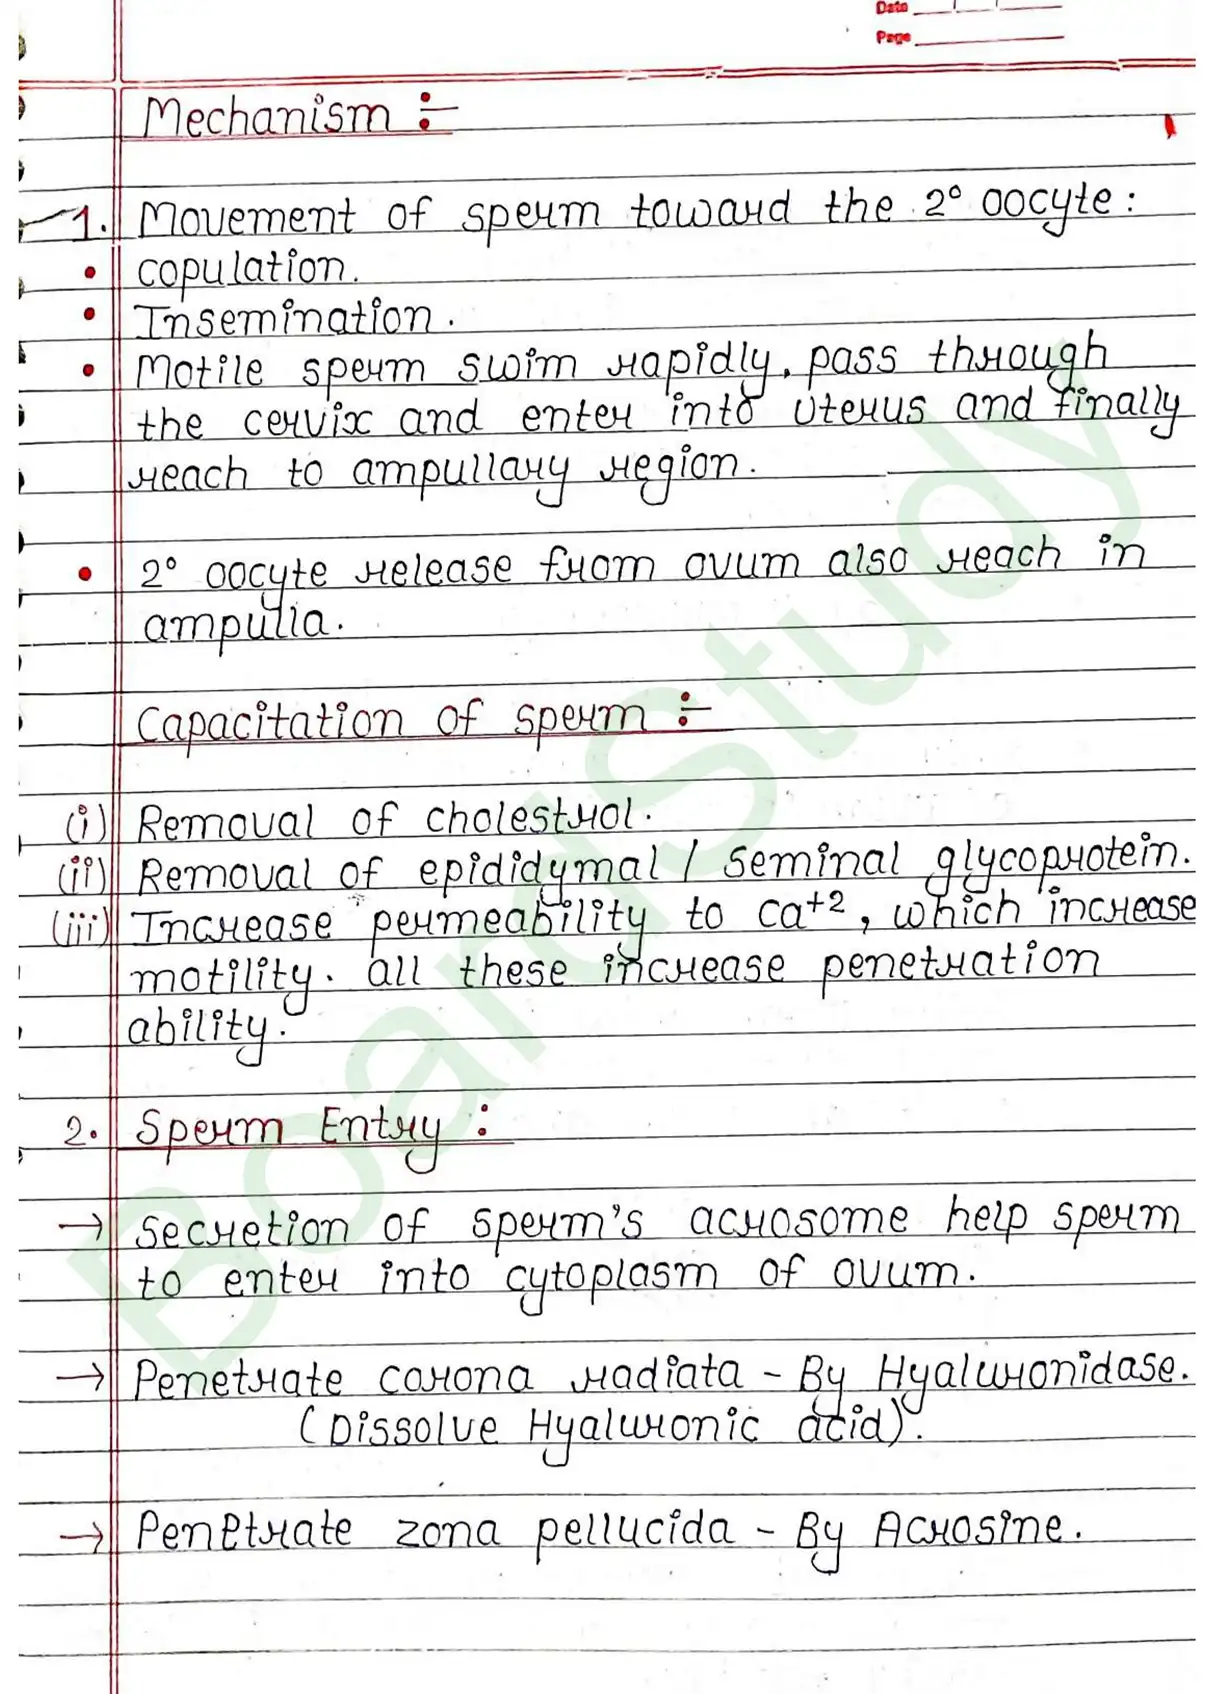 Date
Page
Mechanism :-
1. Movement of sperm toward the 2° oocyte :
• copulation.
• Insemination.
• Motile sperm swim rapidly, pass through
the cervix and enter into uterus and finally
reach to ampullary region.
• 2° oocyte release from ovum also reach in
ampulla.
Capacitation of sperm :-
(i) Removal of cholestrol.
(ii) Removal of epididymal / seminal glycoprotein.
(iii) Increase permeability to Ca+2, which increase
motility. all these increase penetration
ability.
2. Sperm Entry :
→ Secretion of sperm's acrosome help sperm
to enter into cytoplasm of ovum.
→ Penetrate corona radiata - By Hyaluronidase.
(Dissolve Hyaluronic acid).
→ Penetrate zona pellucida - By Acrosine.
BoardStudy